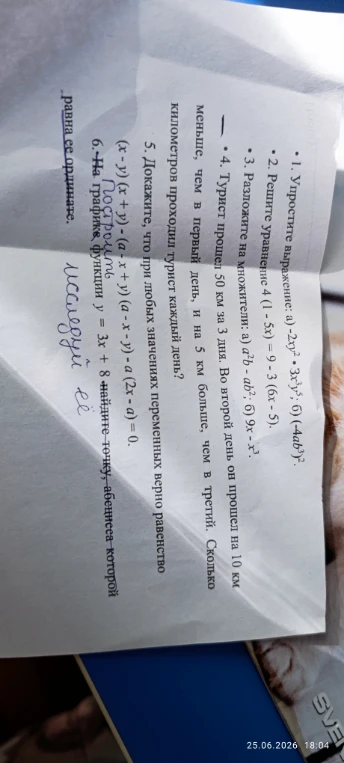 • 1. Упростите выражение: а) -2y² • 3x³y⁵; б) (-4ab³)².
• 2. Решите уравнение 4 (1 - 5x) = 9 - 3 (6x - 5).
• 3. Разложите на множители: а) a²b - ab²; б) 9x - x³.
• 4. Турист прошел 50 км за 3 дня. Во второй день он прошел на 10 км
меньше, чем в первый день, и на 5 км больше, чем в третий. Сколько
километров проходил турист каждый день?
5. Докажите, что при любых значениях переменных верно равенство
(x - y) (x + y) - (a - x + y) (a - x - y) - a (2x - a) = 0.
6. На графике функции y = 3x + 8 найдите точку, абсцисса которой
Построить
равна ее ординате.
исследуй её
SVE
25.06.2026 18:04